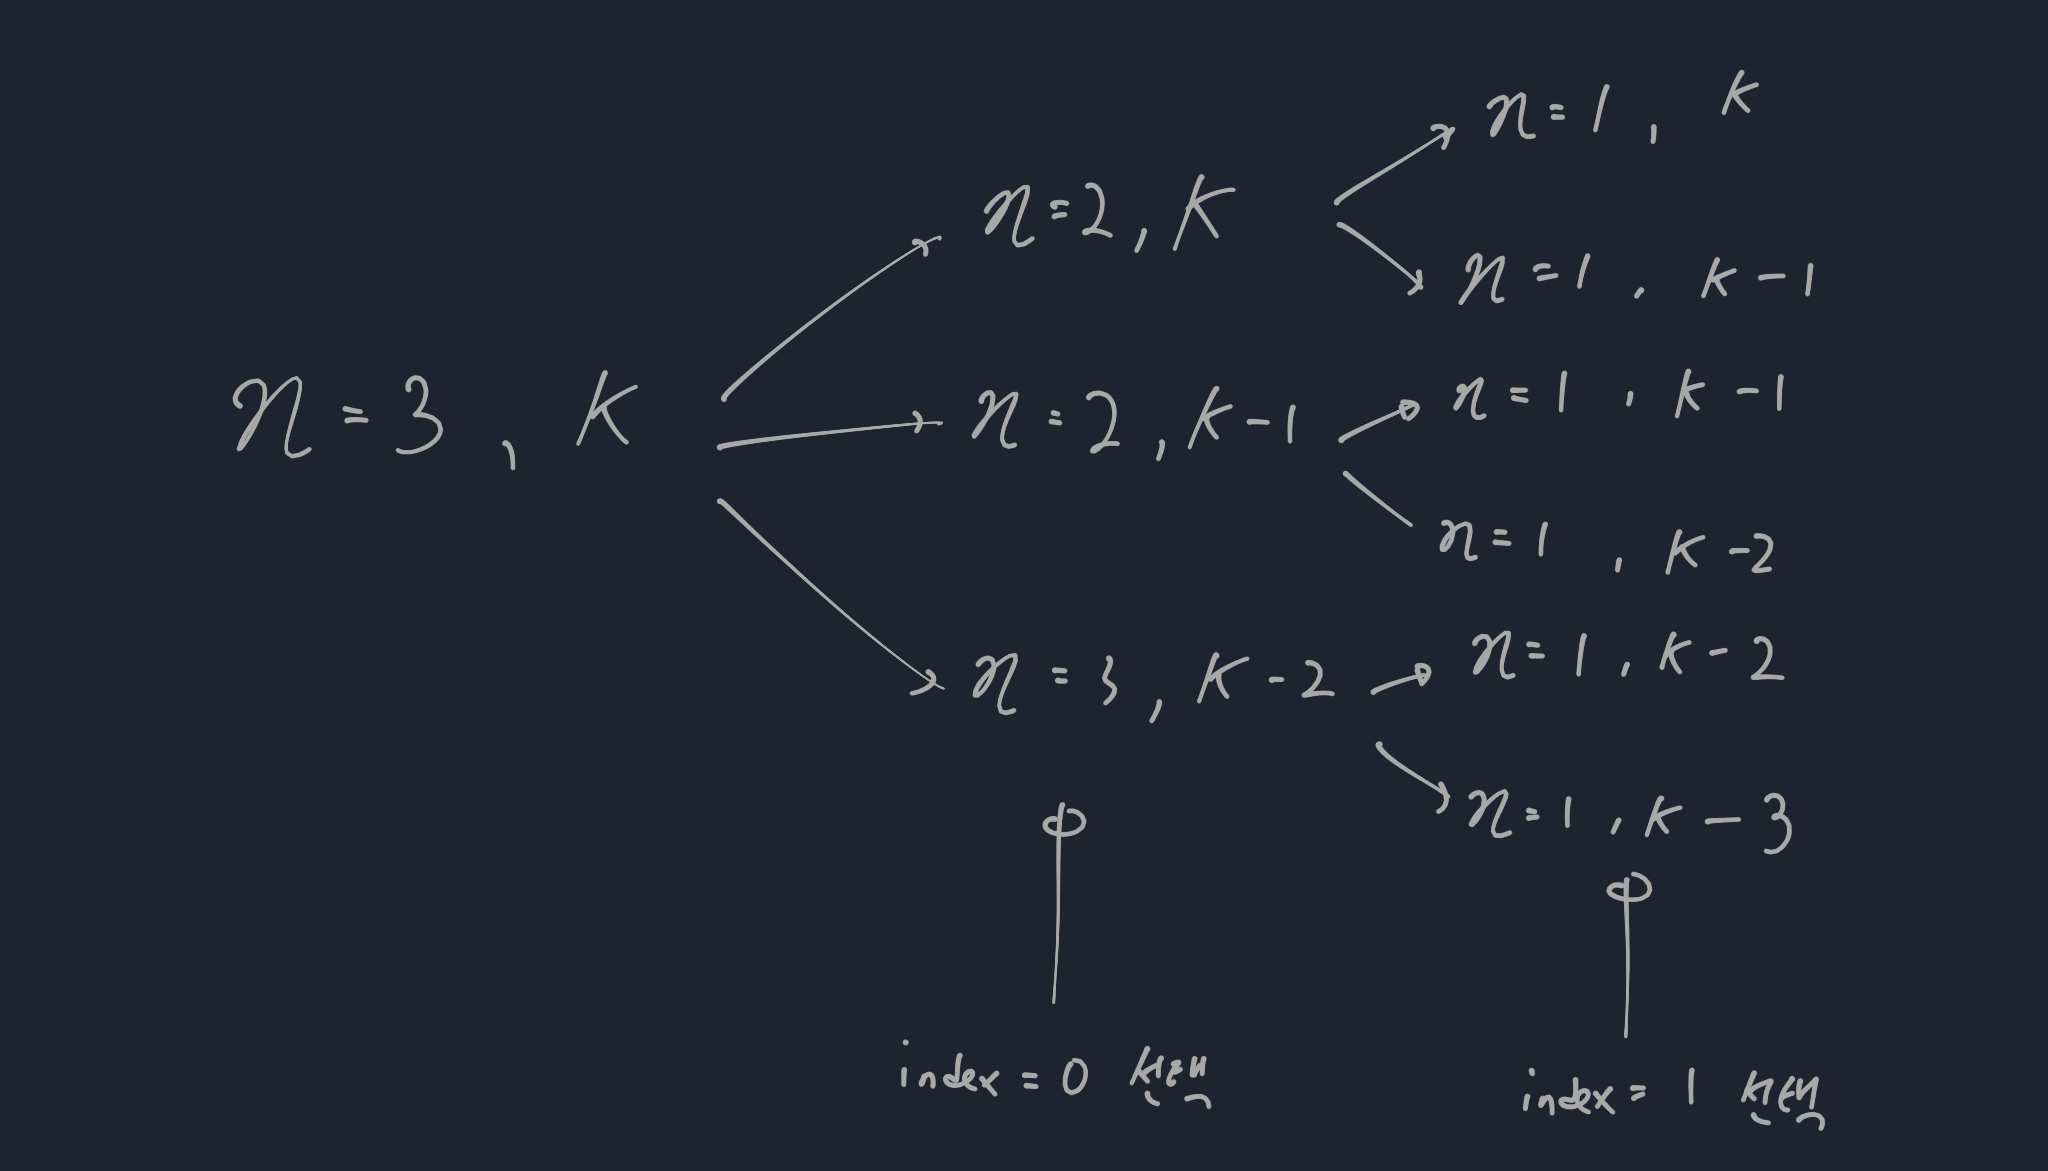 n=3, K
n=2, K
n=2, K-1
n=3, K-2
n=1, K
n=1, K-1
n=1, K-1
n=1, K-2
n=1, K-2
n=1, K-3
index = 0 선택
index = 1 선택